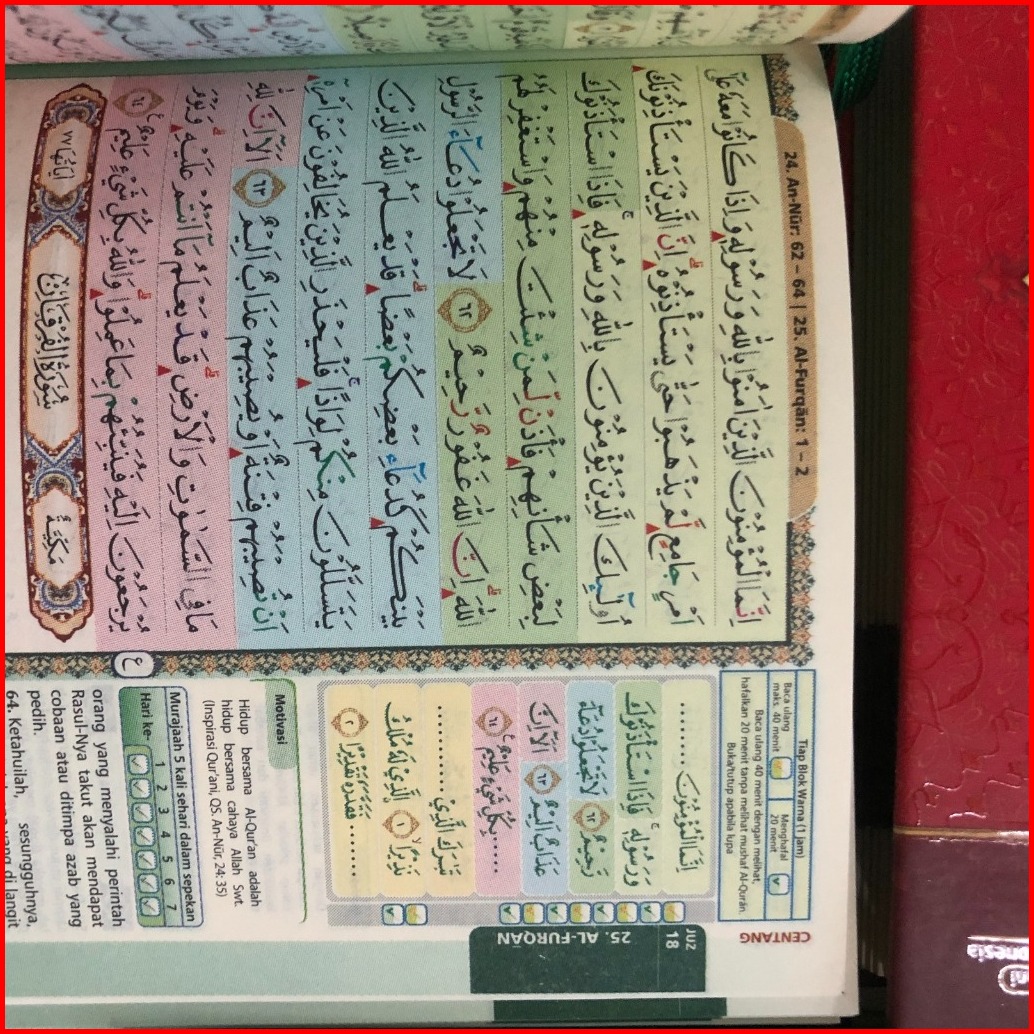 24. An-Nūr: 62 – 64 | 25. Al-Furqān: 1 – 2
اِنَّمَا الْمُؤْمِنُوْنَ الَّذِيْنَ اٰمَنُوْا بِاللّٰهِ وَرَسُوْلِهٖ وَاِذَا كَانُوْا مَعَهٗ عَلٰٓى
اَمْرٍ جَامِعٍ لَّمْ يَذْهَبُوْا حَتّٰى يَسْتَأْذِنُوْهُۗ اِنَّ الَّذِيْنَ يَسْتَأْذِنُوْنَكَ
اُولٰۤىِٕكَ الَّذِيْنَ يُؤْمِنُوْنَ بِاللّٰهِ وَرَسُوْلِهٖۚ فَاِذَا اسْتَأْذَنُوْكَ
لِبَعْضِ شَأْنِهِمْ فَأْذَنْ لِّمَنْ شِئْتَ مِنْهُمْ وَاسْتَغْفِرْ لَهُمُ
اللّٰهَۗ اِنَّ اللّٰهَ غَفُوْرٌ رَّحِيْمٌ ٦٢ لَا تَجْعَلُوْا دُعَاۤءَ الرَّسُوْلِ
بَيْنَكُمْ كَدُعَاۤءِ بَعْضِكُمْ بَعْضًاۗ قَدْ يَعْلَمُ اللّٰهُ الَّذِيْنَ
يَتَسَلَّلُوْنَ مِنْكُمْ لِوَاذًاۚ فَلْيَحْذَرِ الَّذِيْنَ يُخَالِفُوْنَ عَنْ اَمْرِهٖٓ
اَنْ تُصِيْبَهُمْ فِتْنَةٌ اَوْ يُصِيْبَهُمْ عَذَابٌ اَلِيْمٌ ٦٣ اَلَآ اِنَّ لِلّٰهِ
مَا فِى السَّمٰوٰتِ وَالْاَرْضِۗ قَدْ يَعْلَمُ مَآ اَنْتُمْ عَلَيْهِۗ وَيَوْمَ
يُرْجَعُوْنَ اِلَيْهِ فَيُنَبِّئُهُمْ بِمَا عَمِلُوْاۗ وَاللّٰهُ بِكُلِّ شَيْءٍ عَلِيْمٌ ٦٤
مَكِّيَّةٌ سُوْرَةُ الْفُرْقَانِ اٰيَاتُهَا ٧٧
ع
Tiap Blok Warna (1 jam)
Baca ulang maks. 40 menit
Menghafal 20 menit
Baca ulang 40 menit dengan melihat,
hafalkan 20 menit tanpa melihat mushaf Al-Qurān.
Buka/tutup apabila lupa
CENTANG
اِنَّمَا الْمُؤْمِنُوْنَ ......
وَرَسُوْلِهٖۚ فَاِذَا اسْتَأْذَنُوْكَ
رَحِيْمٌ ٦٢ لَا تَجْعَلُوْا دُعَاۤءَ
عَذَابٌ اَلِيْمٌ ٦٣ اَلَآ اِنَّ
...... بِكُلِّ شَيْءٍ عَلِيْمٌ ٦٤
تَبٰرَكَ الَّذِيْ ......
نَذِيْرًا ١ الَّذِيْ لَهٗ مُلْكُ
...... فَقَدَّرَهٗ تَقْدِيْرًا ٢
JUZ 18
25. AL-FURQĀN
Motivasi
Hidup bersama Al-Qur'an adalah
hidup bersama cahaya Allah Swt.
(Inspirasi Qur'ani, QS. An-Nūr, 24: 35)
Murajaah 5 kali sehari dalam sepekan
Hari ke- 1 2 3 4 5 6 7
orang yang menyalahi perintah
Rasul-Nya takut akan mendapat
cobaan atau ditimpa azab yang
pedih.
64. Ketahuilah, sesungguhnya,
yang di langit